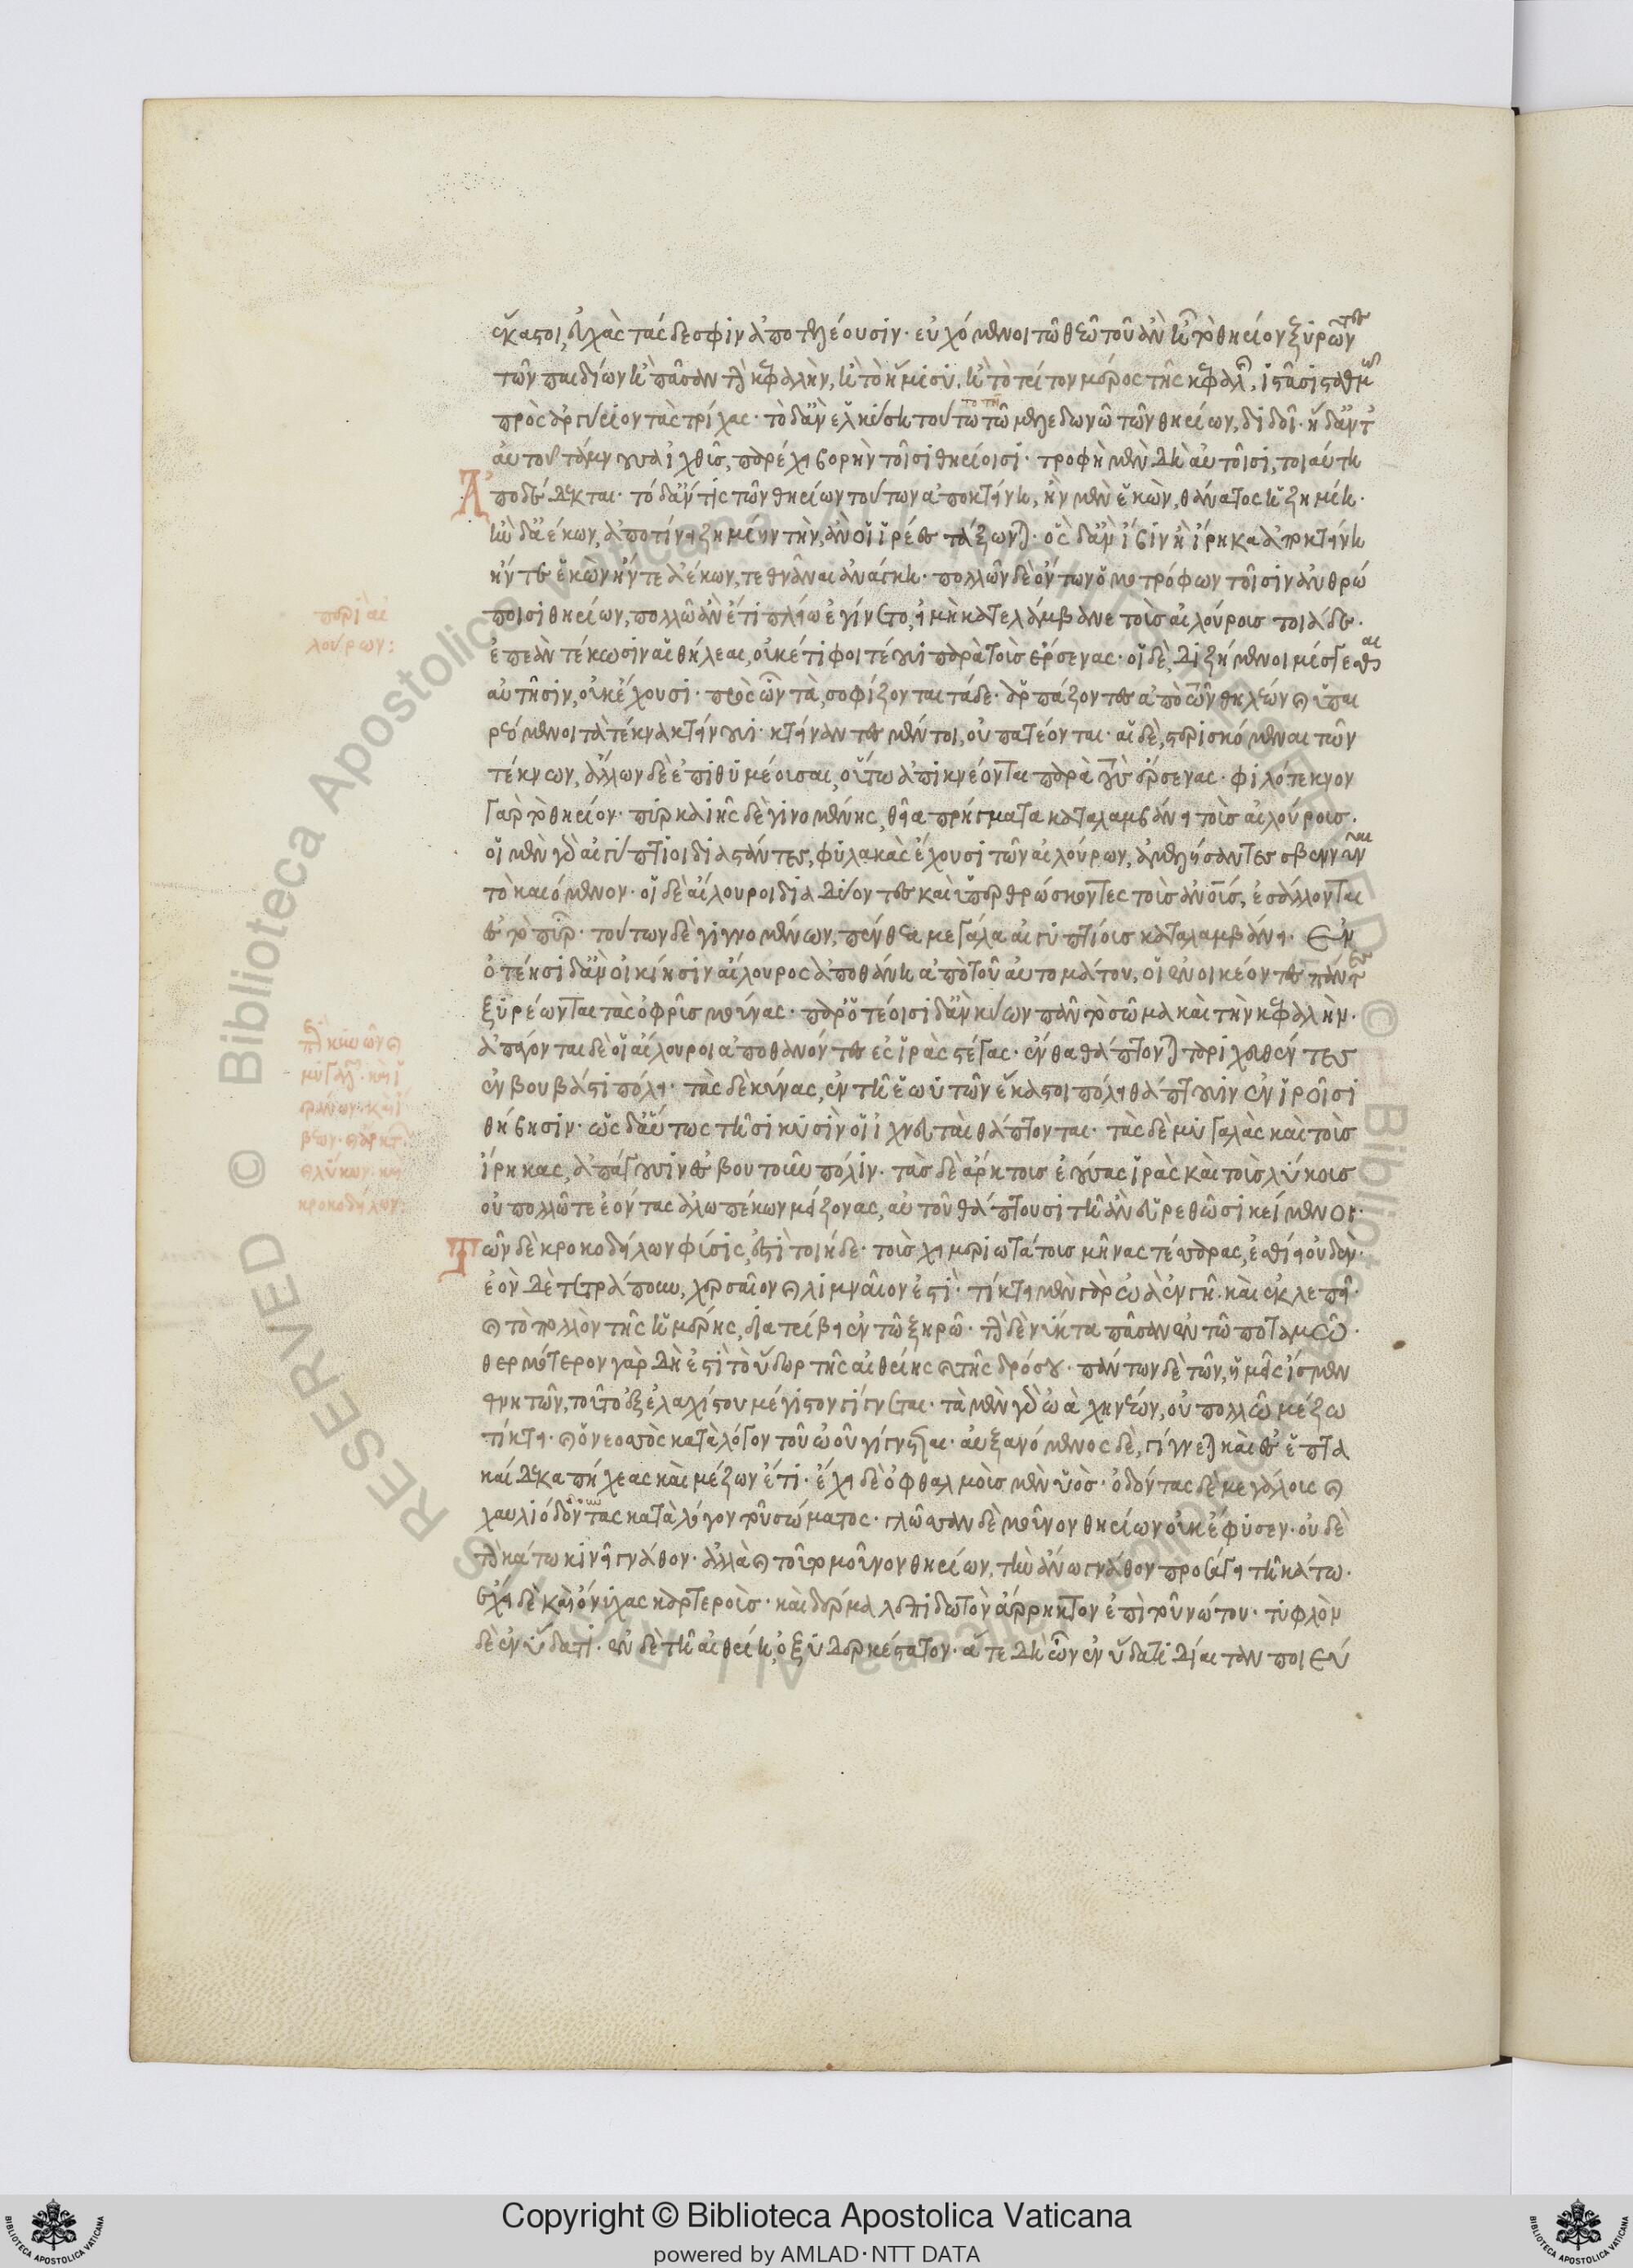 ἕκαστοι, εὐχὰς τάσδε σφιν ἀποτελέουσιν· εὐχόμενοι τῶ θεῶ τοῦ ἂν ἦ τὸ θηρίον ξυρῶντες
τῶν παιδίων ἢ πᾶσαν τὴν κεφαλὴν, ἢ τὸ ἥμισυ, ἢ τὸ τρίτον μέρος τῆς κεφαλῆς, ἱστᾶσι σταθμῶ
πρὸς ἀργύριον τὰς τρίχας· τὸ δ' ἂν ἑλκύση τοῦτο τῆ μελεδωνῶ τῶν θηρίων, διδοῖ· ἡ δ' ἀντ'
αὐτοῦ τάμνουσα ἰχθῦς, παρέχει βορὴν τοῖσι θηρίοισι· τροφὴ μὲν δὴ αὐτοῖσι, τοιαύτη
Ἀποδέδεκται· τὸ δ' ἄν τις τῶν θηρίων τούτων ἀποκτείνη, ἢν μὲν ἑκὼν, θάνατος ἡ ζημίη·
ἢν δὲ ἀέκων, ἀποτίνει ζημίην τὴν ἂν οἱ ἱρέες τάξωνται· ὃς δ' ἂν ἶβιν ἢ ἴρηκα ἀποκτείνη
ἤν τε ἑκὼν ἤν τε ἀέκων, τεθνάναι ἀνάγκη· πολλῶν δὲ ὄντων ὁμοτρόφων τοῖσιν ἀνθρώ
ποισι θηρίων, πολλῶ ἂν ἔτι πλείω ἐγίνετο, εἰ μὴ κατελάμβανε τοὺς αἰλούρους τοιάδε·
ἐπεὰν τέκωσιν αἱ θήλεαι, οὐκέτι φοιτέουσι παρὰ τοὺς ἔρσενας· οἱ δὲ, διζήμενοι μίσγεσθαι
αὐτῆσιν, οὐκ ἔχουσι· πρὸς ὦν ταῦτα, σοφίζονται τάδε· ἁρπάζοντες ἀπὸ τῶν θηλέων καὶ ὑπαι
ρεόμενοι τὰ τέκνα κτείνουσι· κτείναντες μέντοι, οὐ πατέονται· αἱ δὲ, στερισκόμεναι τῶν
τέκνων, ἄλλων δὲ ἐπιθυμέουσαι, οὕτω ἀπικνέονται παρὰ τοὺς ἔρσενας· φιλότεκνον
γὰρ τὸ θηρίον· πυρκαϊῆς δὲ γινομένης, θεῖα πρήγματα καταλαμβάνει τοὺς αἰλούρους·
οἱ μὲν γὰρ αἰγύπτιοι διαστάντες, φυλακὰς ἔχουσι τῶν αἰλούρων, ἀμελήσαντες σβεννύναι
τὸ καιόμενον· οἱ δὲ αἰλουροι διαδύοντες καὶ ὑπερθρώσκοντες τοὺς ἀνθρώπους, ἐσάλλονται
ἐς τὸ πῦρ· τούτων δὲ γιγνομένων, πένθεα μεγάλα αἰγυπτίους καταλαμβάνει· ἐν
ὁτέησι δ' ἂν οἰκίησιν αἴλουρος ἀποθάνη ἀπὸ τοῦ αὐτομάτου, οἱ ἐνοικέοντες πάντες
ξυρέωνται τὰς ὀφρῦς μούνας· παρ' ὁτέοισι δ' ἂν κύων πᾶν τὸ σῶμα καὶ τὴν κεφαλήν·
ἀπάγονται δὲ οἱ αἴλουροι ἀποθανόντες ἐς ἱρὰς στέγας· ἔνθα θάπτονται ταριχευθέντες
ἐν βουβάστι πόλει· τὰς δὲ κύνας, ἐν τῆ ἑωυτῶν ἕκαστοι πόλει θάπτουσιν ἐν ἱροῖσι
θήβησιν· ὣς δ' αὕτως τῆσι κυσὶν οἱ ἰχνευταὶ θάπτονται· τὰς δὲ μυγαλὰς καὶ τοὺς
ἴρηκας, ἀπάγουσιν ἐς βουτοῦν πόλιν· τὰς δὲ ἄρκτους ἐούσας ἱρὰς καὶ τοὺς λύκους
οὐ πολλῶ τε ἐόντας ἀλωπέκων μέζονας, αὐτοῦ θάπτουσι τῆ ἂν εὑρεθῶσι κείμενοι·
Τῶν δὲ κροκοδείλων φύσις, ἐστὶ τοιήδε· τοὺς χειμεριωτάτους μῆνας τέσσερας, ἐσθίει οὐδὲν·
ἐὸν δὲ τετράπουν, χερσαῖον καὶ λιμναῖον ἐστὶ· τίκτει μὲν γὰρ ὠὰ ἐν γῆ· καὶ ἐκλέπει·
καὶ τὸ πολλὸν τῆς ἡμέρης, διατρίβει ἐν τῶ ξηρῶ· τὴν δὲ νύκτα πᾶσαν ἐν τῶ ποταμῶ·
θερμότερον γὰρ δή ἐστι τὸ ὕδωρ τῆς αἰθρίης καὶ τῆς δρόσου· πάντων δὲ τῶν, ἡμεῖς ἴσμεν
θνητῶν, τοῦτο ἐξ ἐλαχίστου μέγιστον γίγνεται· τὰ μὲν γὰρ ὠὰ χηνέων, οὐ πολλῶ μέζω
τίκτει· καὶ ὁ νεοσσὸς κατὰ λόγον τοῦ ὠοῦ γίγνεται· αὐξανόμενος δὲ, γίγνεται καὶ ἐς ἑπτα
καίδεκα πήχεας καὶ μέζων ἔτι· ἔχει δὲ ὀφθαλμοὺς μὲν ὑὸς· ὀδόντας δὲ μεγάλους καὶ
χαυλιόδοντας κατὰ λόγον τοῦ σώματος· γλῶσσαν δὲ μοῦνον θηρίων οὐκ ἔφυσεν· οὐδὲ
τὴν κάτω κινεῖ γνάθον· ἀλλὰ καὶ τοῦτο μοῦνον θηρίων, τὴν ἄνω γνάθον προσάγει τῆ κάτω·
ἔχει δὲ καὶ ὄνυχας καρτεροὺς· καὶ δέρμα λεπιδωτὸν ἄρρηκτον ἐπὶ τοῦ νώτου· τυφλὸν
δὲ ἐν ὕδατι· ἐν δὲ τῆ αἰθρίη, ὀξυδερκέστατον· ἅτε δὴ ὦν ἐν ὕδατι δίαιταν ποιεύ
περὶ αἰ
λούρων: